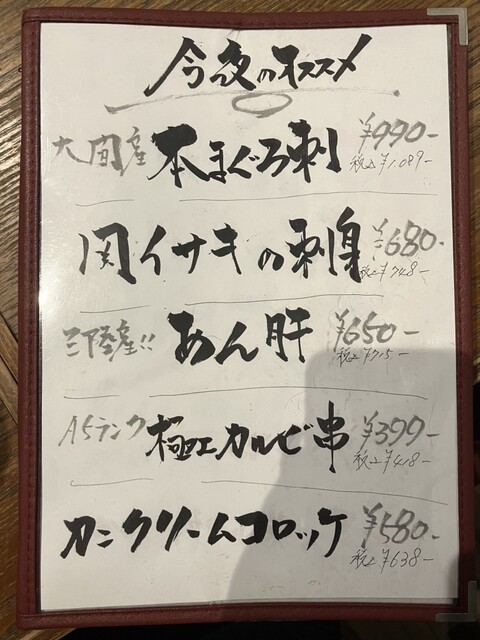 今夜のオススメ
大間産 本まぐろ刺 ¥990-
税込¥1.089-
関イサキの刺身 ¥680-
税込¥748-
三陸産!! あん肝 ¥650-
税込¥715-
A5ランク 極上カルビ串 ¥399-
税込¥418-
カニクリームコロッケ ¥580-
税込¥638-